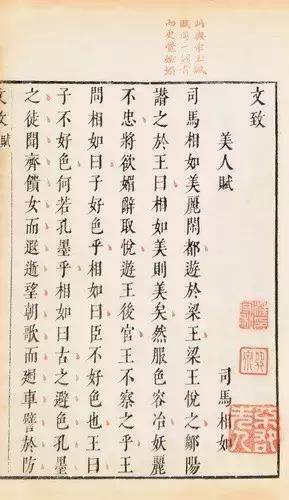 與宋玉
賦同一
而
文致
美人賦
司馬相如
司馬相如美麗閑都遊於梁王梁王悅之鄒陽
譖之於王曰相如美則美矣然服色容冶妖麗
不忠將欲媚辭取悅遊王後宮王不察之乎王
問相如曰子好色乎相如曰臣不好色也王曰
子不好色何若孔墨乎相如曰古之避色孔墨
之徒聞齊饋女而遐逝望朝歌而廻車譬於防
文致
賦